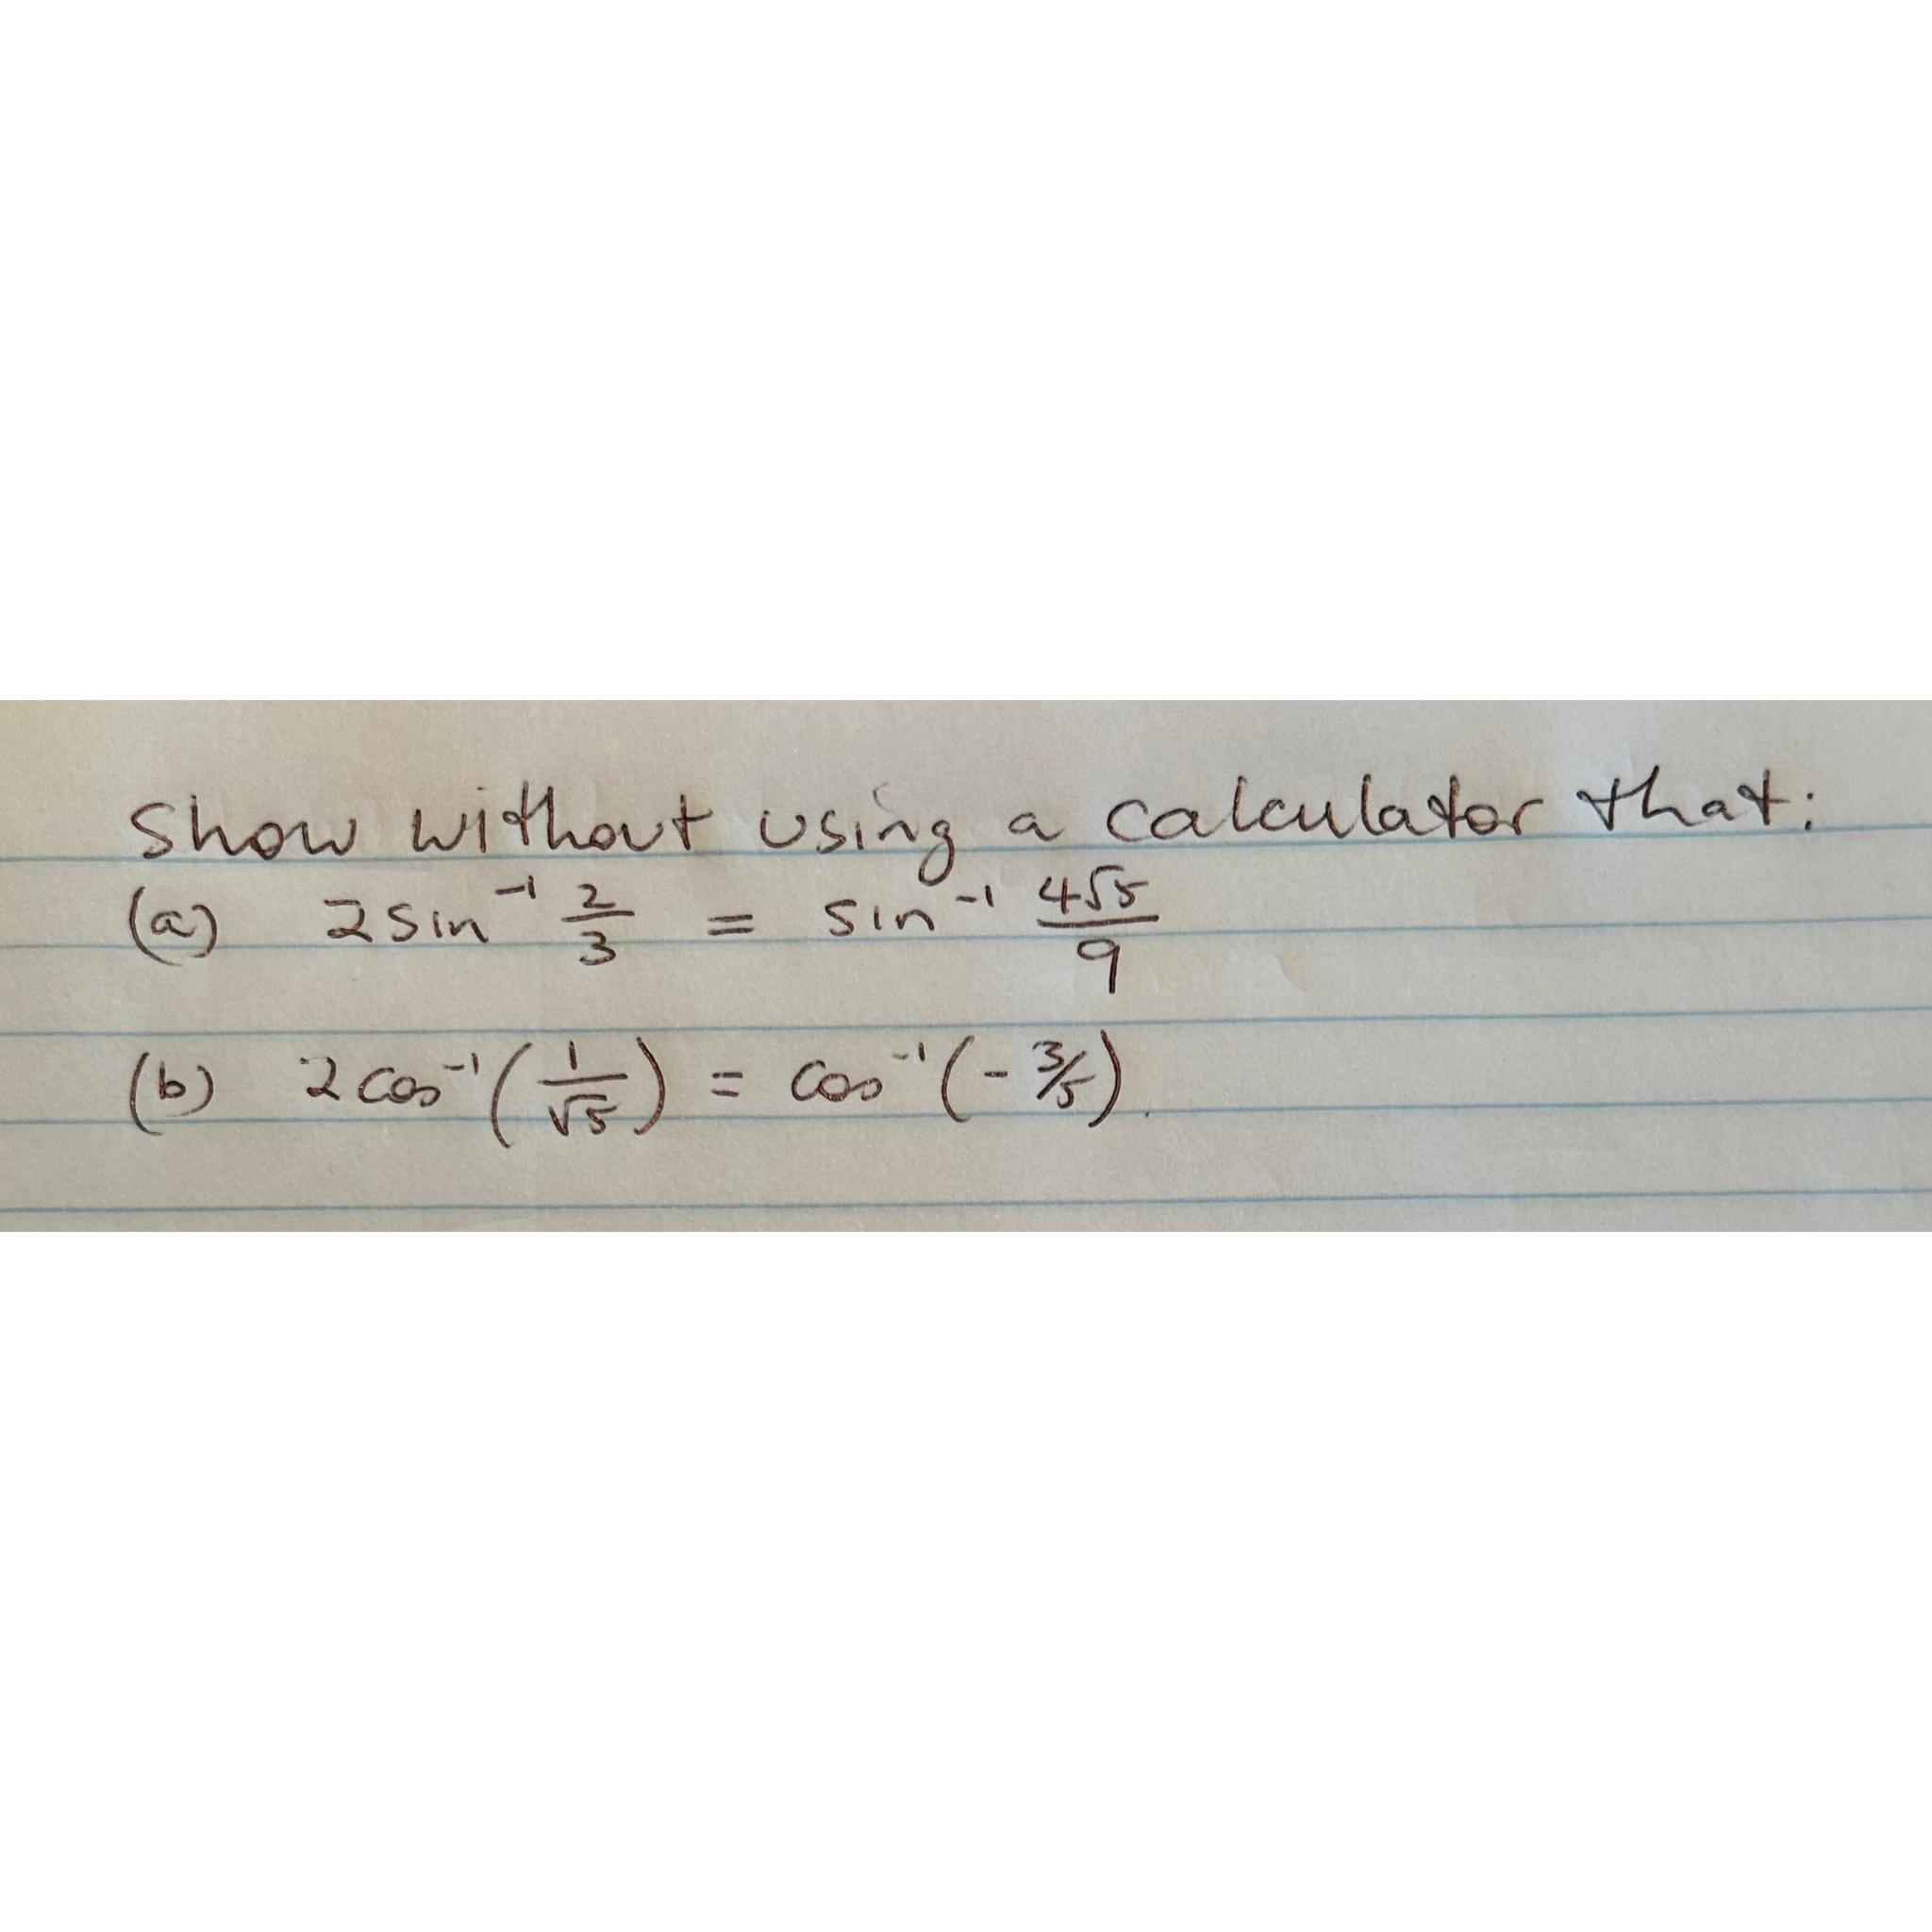 Show without using a calculator that:
(a) 2 sin⁻¹ 2/3 = sin⁻¹ 4√5/9
(b) 2 cos⁻¹(1/√5) = cos⁻¹(- 3/5).